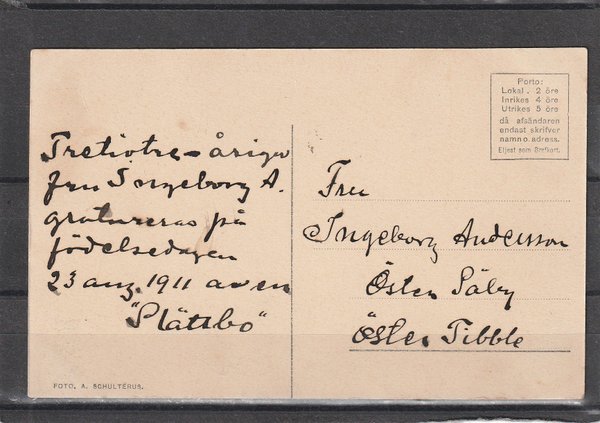 Porto:
Lokal . 2 öre
Inrikes 4 öre
Utrikes 5 öre
då afsändaren
endast skrifver
namn o. adress.
Eljest som Brefkort.
Tretiotre-åriga
fru Ingeborg A.
gratuleras på
födelsedagen
23 aug. 1911 av en
"Slättbo"
Fru
Ingeborg Andersson
Öster Säby
Öster Tibble
FOTO, A. SCHULTERUS.